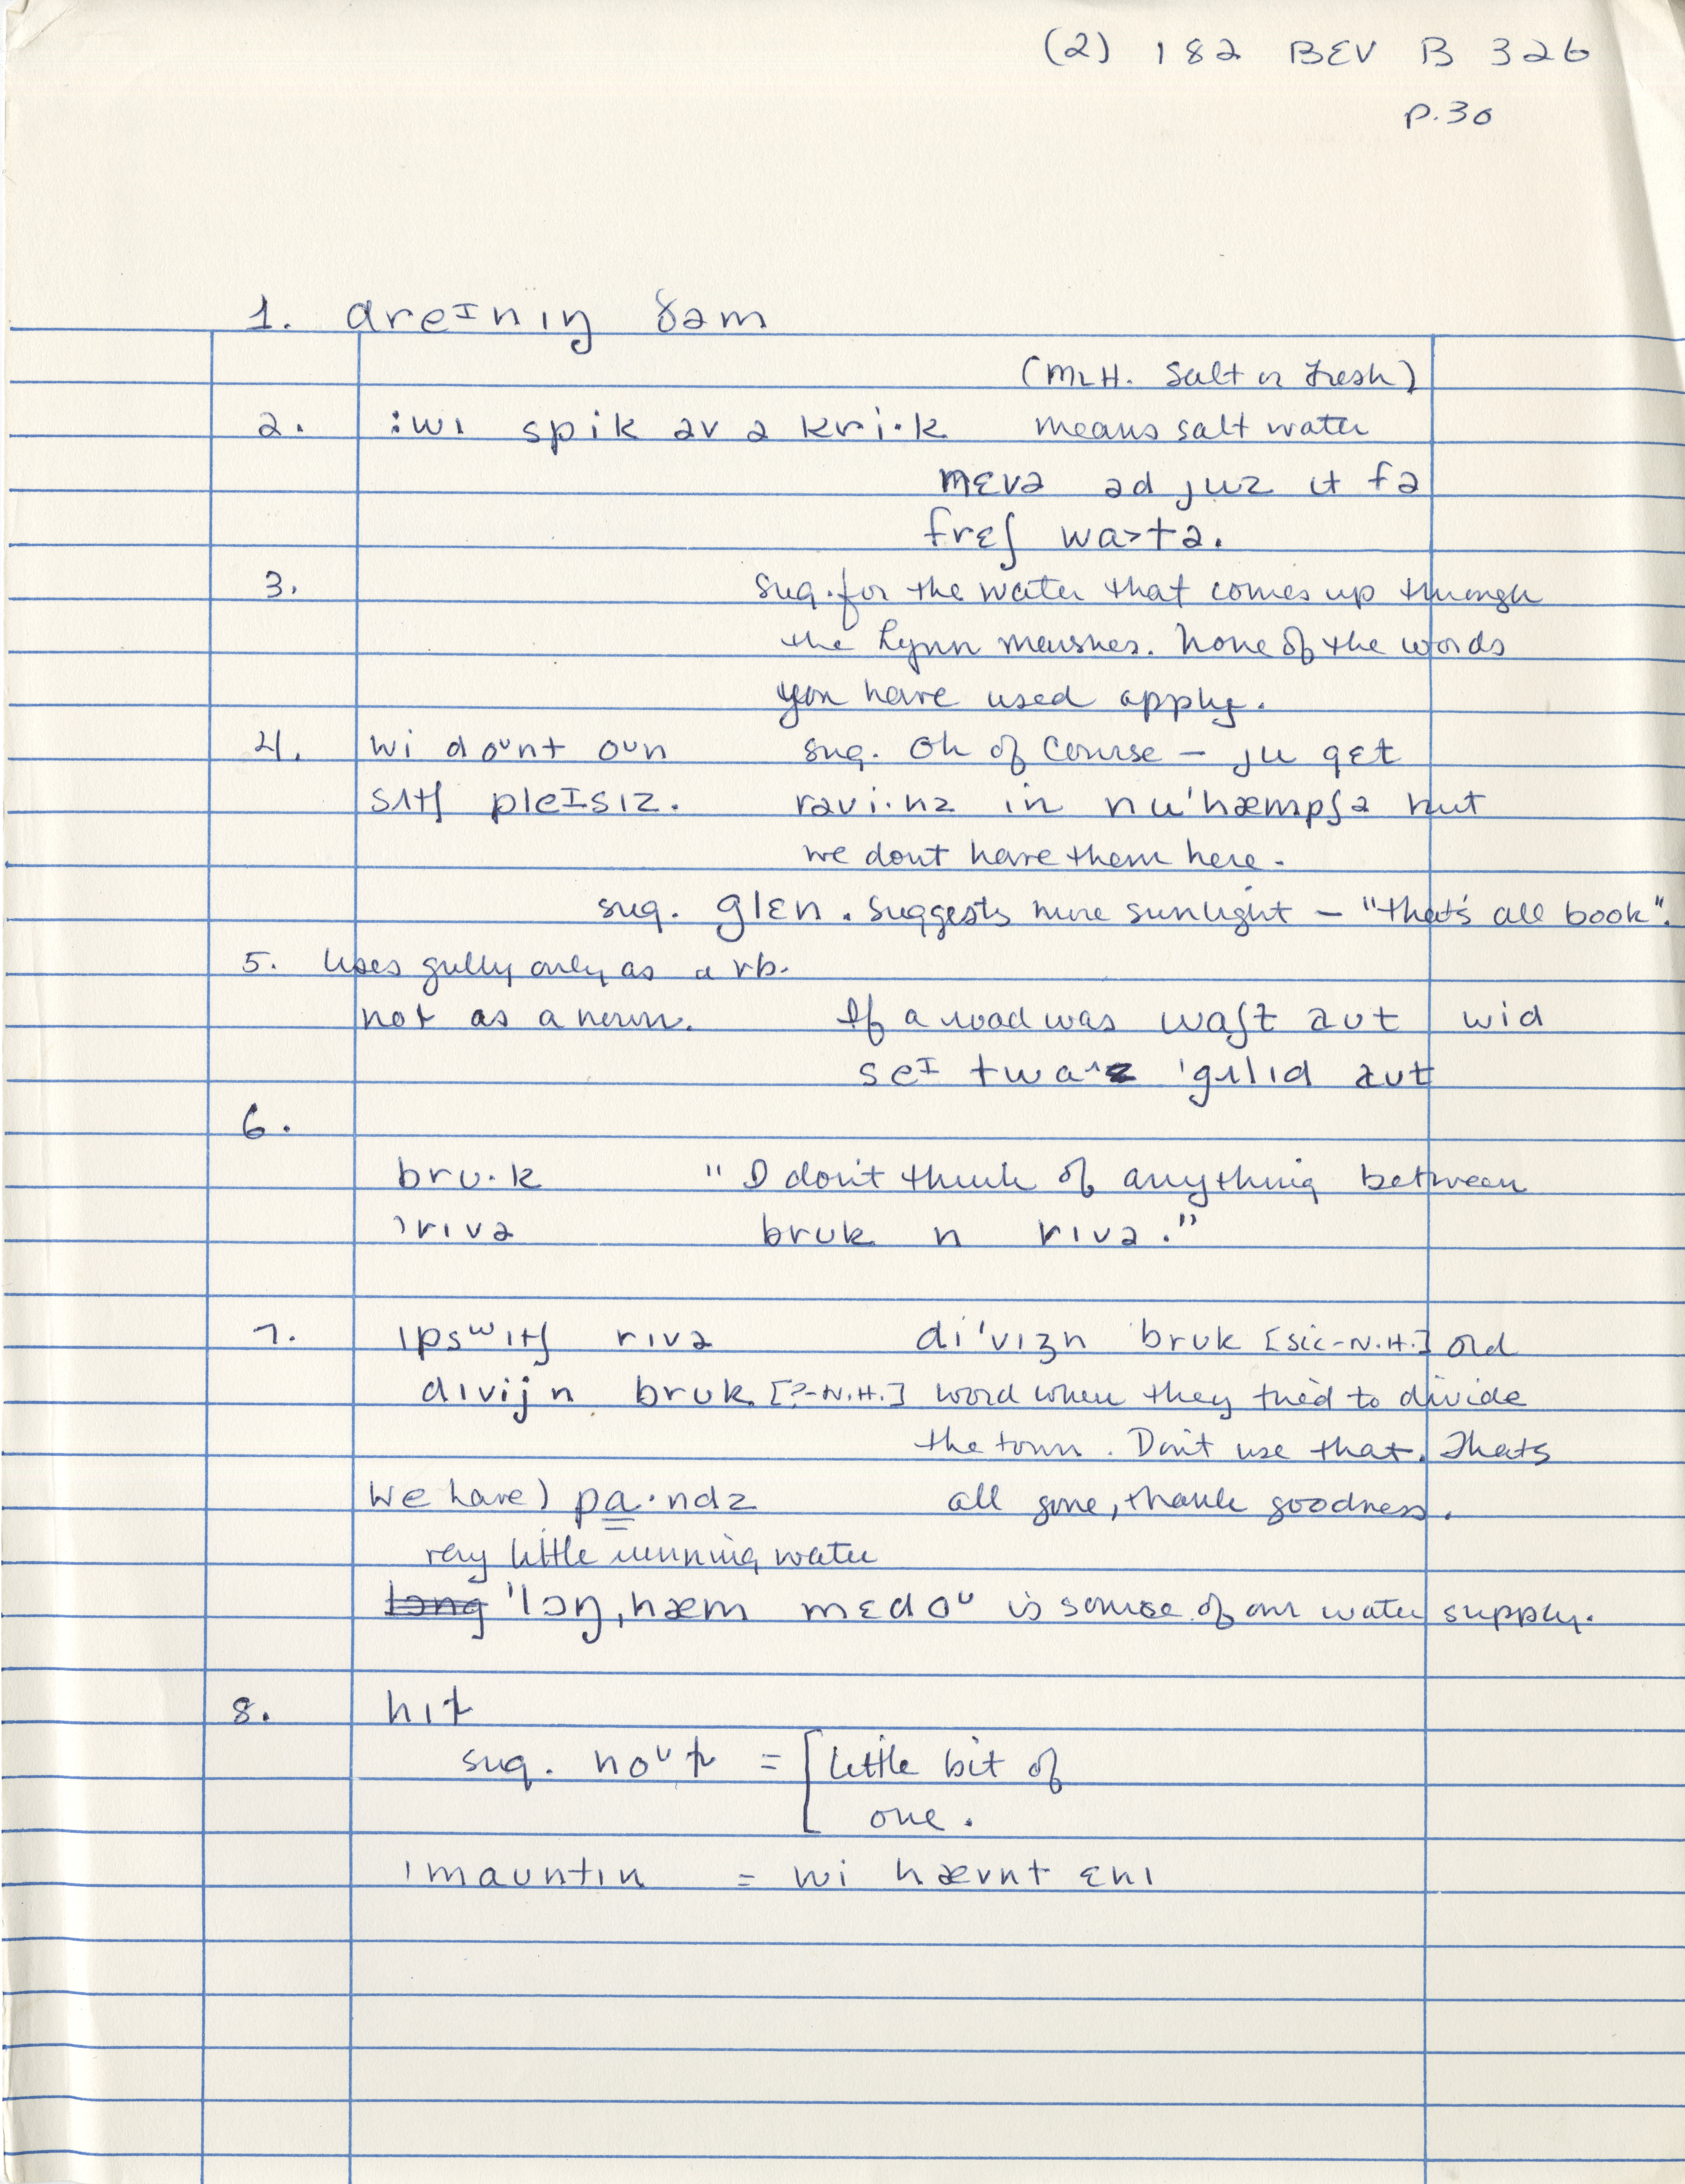 (2) 182 BEV B 326
p.30
1. dreɪnɪŋ ðəm
(M.H. Salt or Fresh)
2. :wɪ spik əv ə kri·k means salt water
mɛvə əd juz ɪt fə
frɛʃ wa>tə.
3. sug. for the water that comes up through
the Lynn marshes. None of the words
you have used apply.
4. wi doᴜnt oun sug. Oh of course – ju gɛt
sʌtʃ pleɪsɪz. rəvi·nz in nu'hæmpʃə but
we dont have them here.
sug. glɛn. suggests more sunlight – "that's all book".
5. Uses gully only as a vb.
not as a noun. If a road was waʃt aut wid
seɪ twaz 'gʌlɪd aut
6.
brᴜ·k "I don't think of anything between
'rɪvə bruk n rɪvə."
7. ɪpsʷɪtʃ rɪvə di'vɪʒn bruk [sic-N.H.] old
dɪvɪjn bruk [?-N.H.] word when they tried to divide
the town. Don't use that. Thats
We have) pa·ndz all gone, thank goodness.
very little running water
lɔng 'lɔŋ,hæm mɛdoᴜ is source of our water supply.
8. hɪɫ
sug. noᴜɫ = [little bit of
one.
'mauntɪn = wi hævnt ɛnɪ